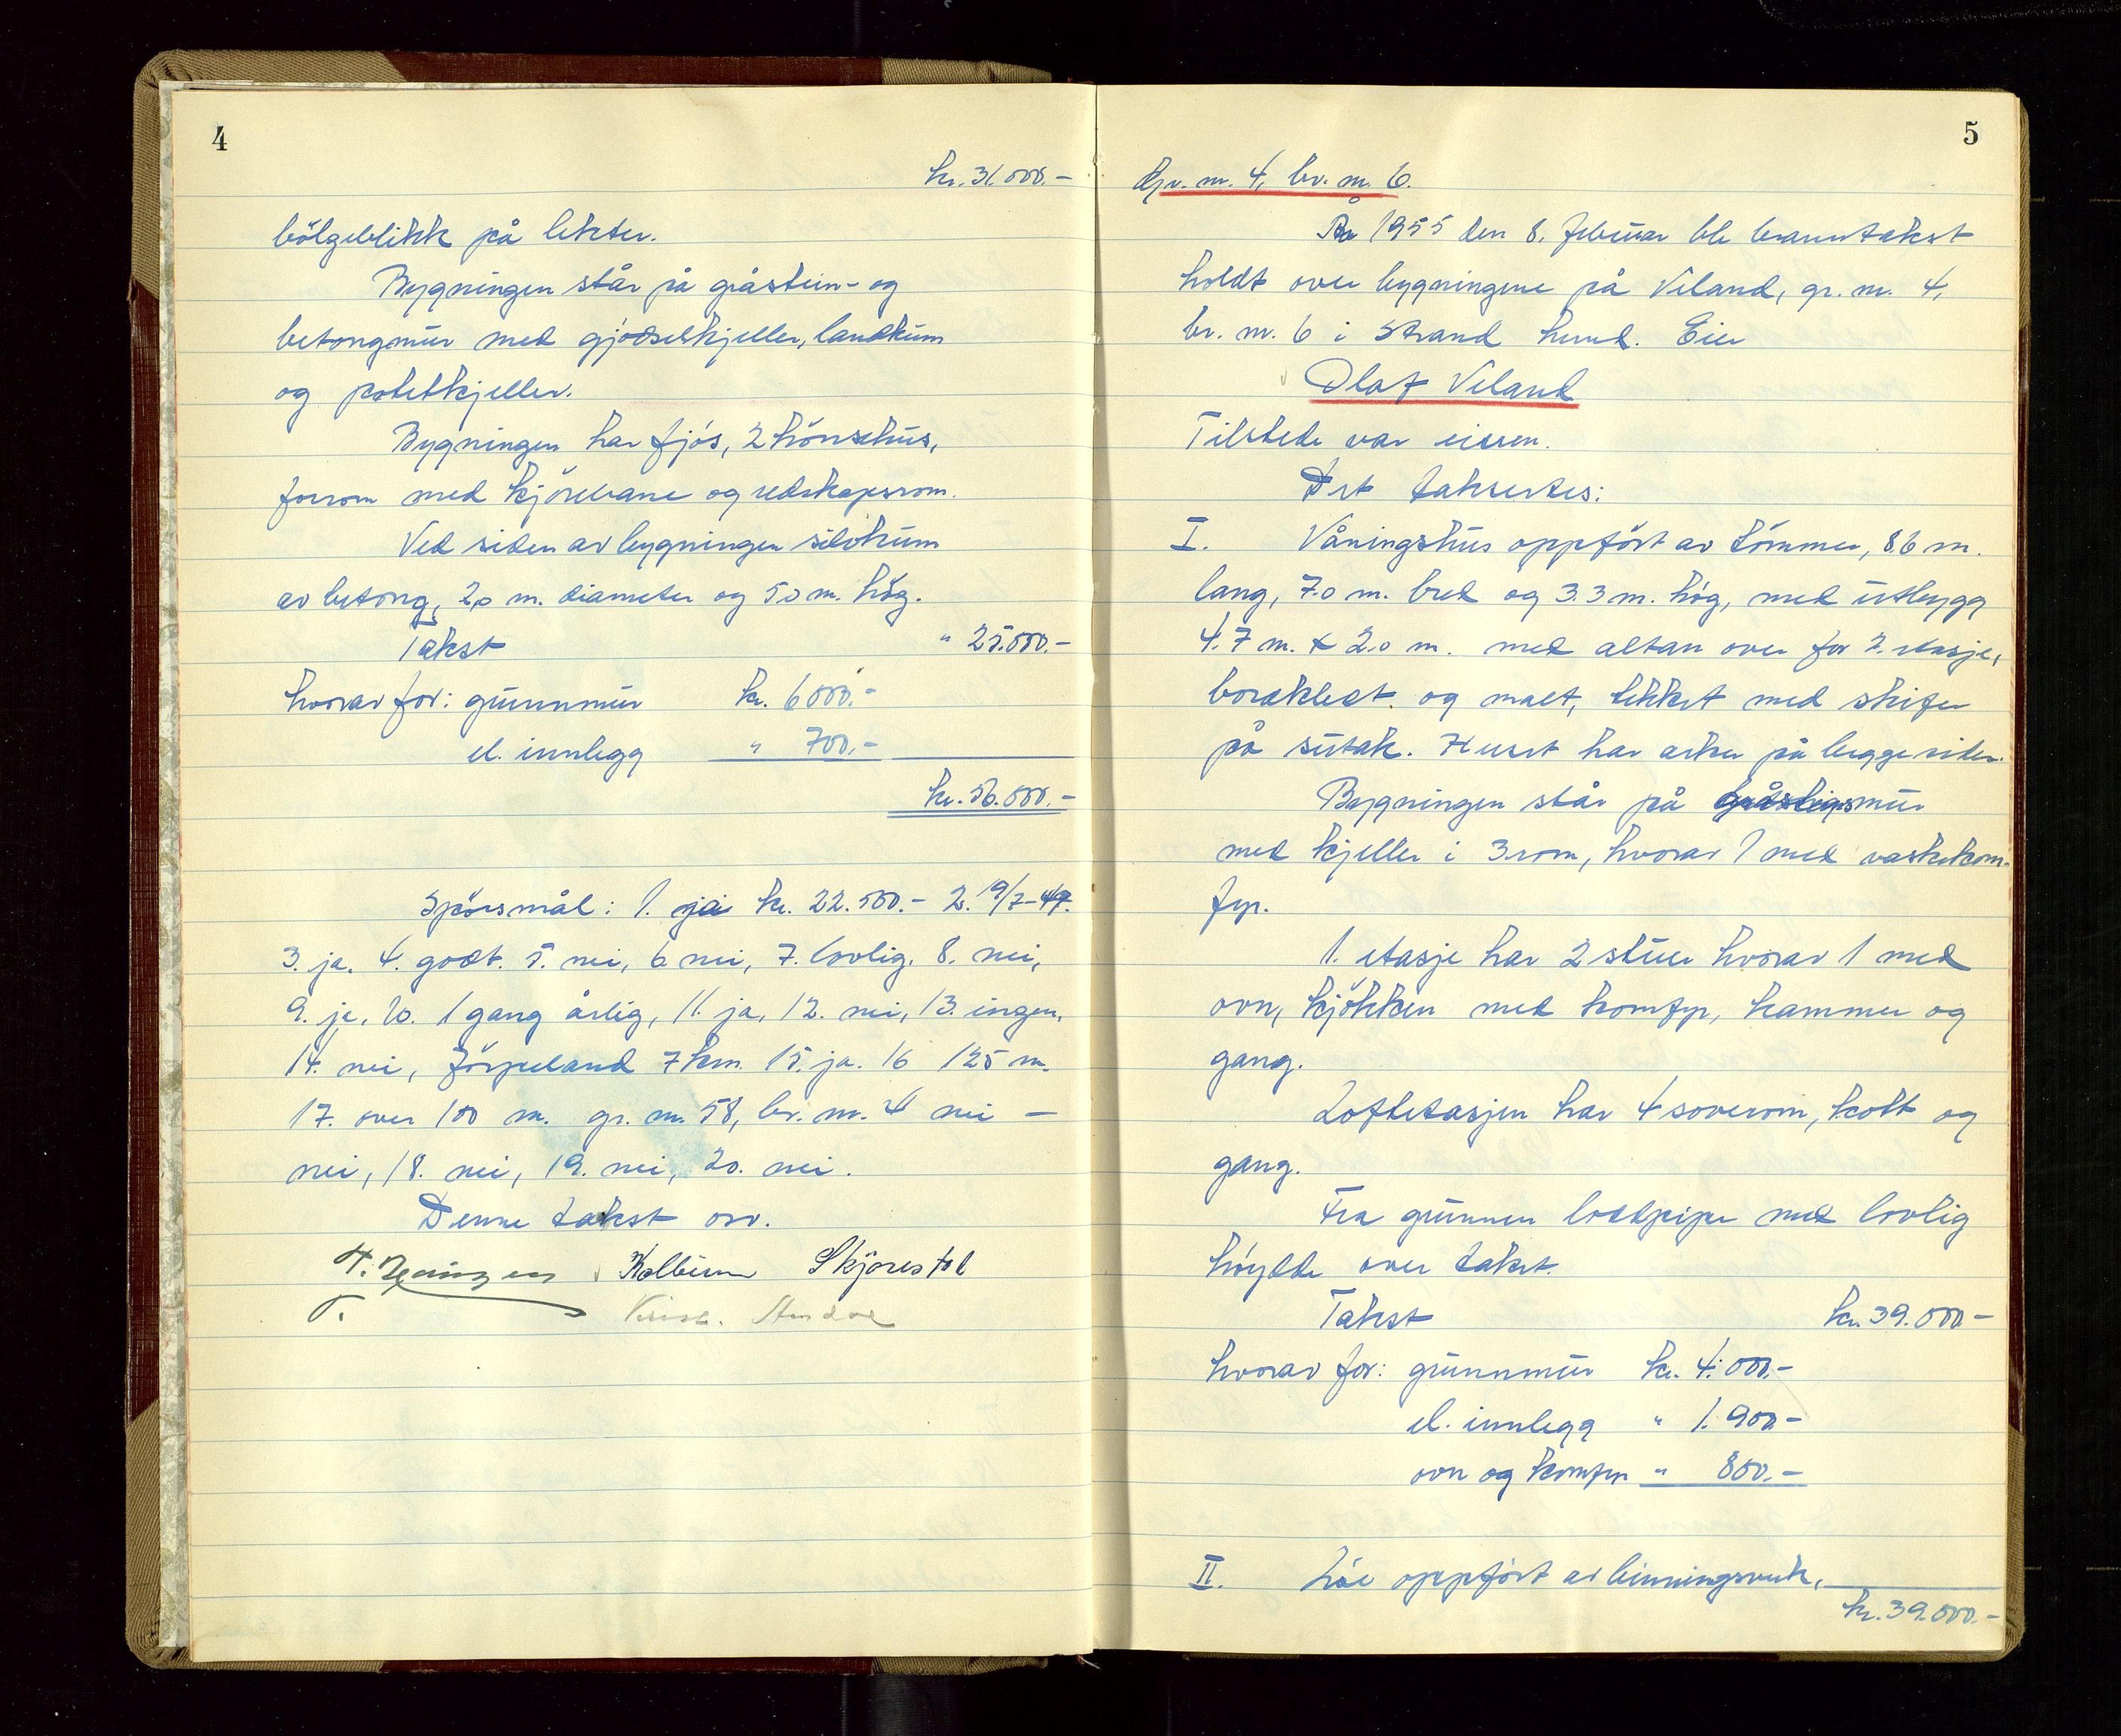 4
kr. 31.000.-
bölgeblikk på lekter.
Bygningen står på gråstein- og
betongmur med gjødselkjeller, landkum
og potetkjeller.
Bygningen har fjós, 2 hönsehus,
forrom med kjörebane og redskapsrom.
Ved siden av bygningen silokum
av betong, 2,0 m. diameter og 5,0 m. hög.
Takst " 25.000.-
hvorav for: grunnmur kr. 6000.-
el. innlegg " 700.-
kr. 56.000.-
Spörsmål: 1. ja kr. 22.500.- 2. 19/7-49.
3. ja. 4. godt. 5. nei, 6 nei, 7. lovlig. 8. nei,
9. ja, 10. 1 gang årlig, 11. ja, 12. nei, 13. ingen,
14. nei, Jörpeland 7 km. 15. ja. 16 125 m.
17. over 100 m. gr. nr. 58, br. nr. 4 nei -
nei, 18. nei, 19. nei, 20. nei.
Denne takst osv.
Kolbein Skjørestad
5
Gr. nr. 4, br. nr. 6.
År 1955 den 8. februar ble branntakst
holdt over bygningene på Veland, gr. nr. 4,
br. nr. 6 i Strand herred. Eier
Olaf Veland
Tilstede var eieren.
Det taksertes:
I. Våningshus oppfört av tömmer, 8.6 m.
lang, 7.0 m. bred og 3.3 m. hög, med utbygg
4.7 m. x 2.0 m. med altan over for 2. etasje,
bordkledt og malt, tekket med skifer
på sutak. Huset har arker på begge sider.
Bygningen står på gråsteinsmur
med kjeller i 3 rom, hvorav 1 med vaskekom-
fyr.
1. etasje har 2 stuer hvorav 1 med
ovn, kjökken med komfyr, kammer og
gang.
Loftetasjen har 4 soverom, kott og
gang.
Fra grunnen loddpipe med lovlig
höyde over taket.
Takst kr. 39.000.-
hvorav for: grunnmur kr. 4.000.-
el. innlegg " 1.900.-
ovn og komfyr " 850.-
II. Löe oppfört av binningsverk,
kr. 39.000.-